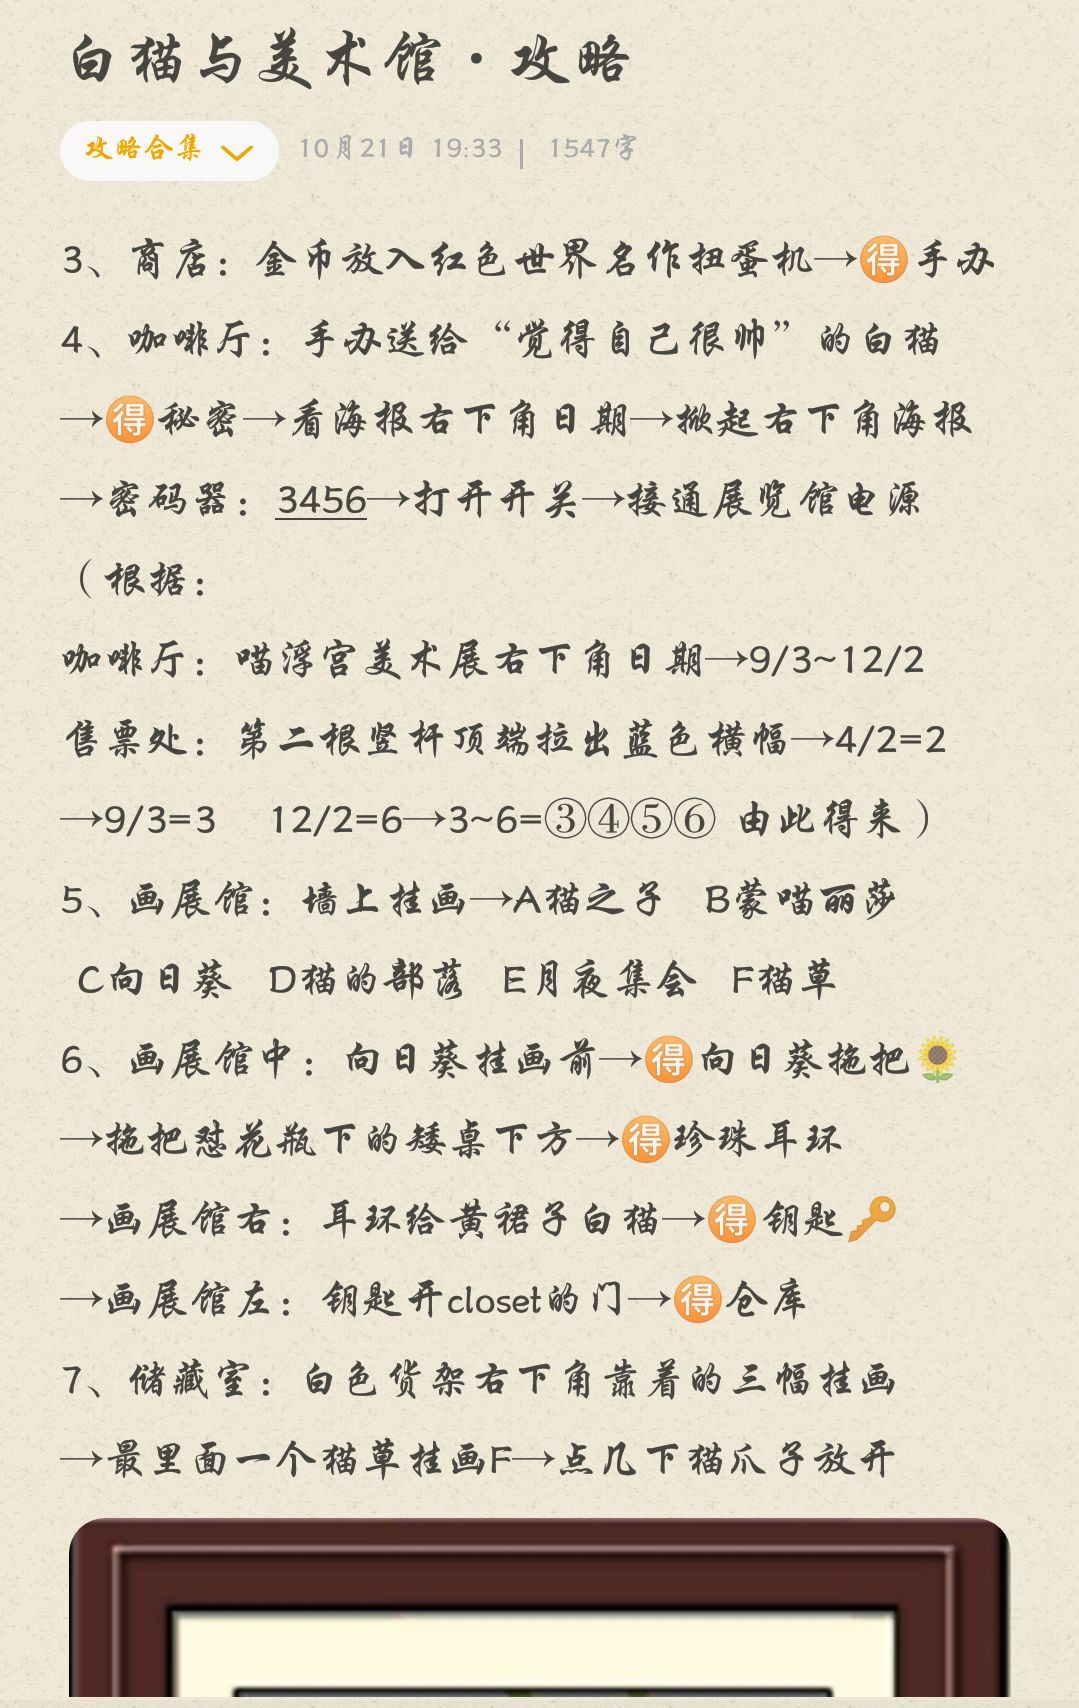 白猫与美术馆·攻略
攻略合集 10月21日 19:33 | 1547字
3、商店：金币放入红色世界名作扭蛋机→🉐手办
4、咖啡厅：手办送给“觉得自己很帅”的白猫
→🉐秘密→看海报右下角日期→掀起右下角海报
→密码器：3456→打开开关→接通展览馆电源
（根据：
咖啡厅：喵浮宫美术展右下角日期→9/3~12/2
售票处：第二根竖杆顶端拉出蓝色横幅→4/2=2
→9/3=3 12/2=6→3~6=③④⑤⑥ 由此得来）
5、画展馆：墙上挂画→A猫之子 B蒙喵丽莎
C向日葵 D猫的部落 E月夜集会 F猫草
6、画展馆中：向日葵挂画前→🉐向日葵拖把🌻
→拖把怼花瓶下的矮桌下方→🉐珍珠耳环
→画展馆右：耳环给黄裙子白猫→🉐钥匙🔑
→画展馆左：钥匙开closet的门→🉐仓库
7、储藏室：白色货架右下角靠着的三幅挂画
→最里面一个猫草挂画F→点几下猫爪子放开